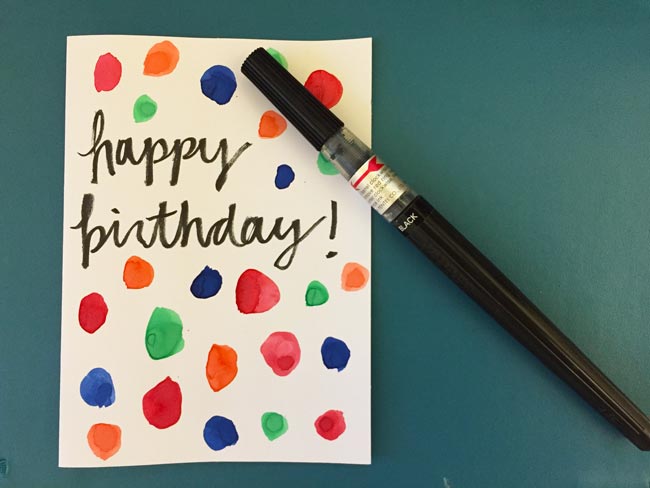 happy
birthday!
BLACK